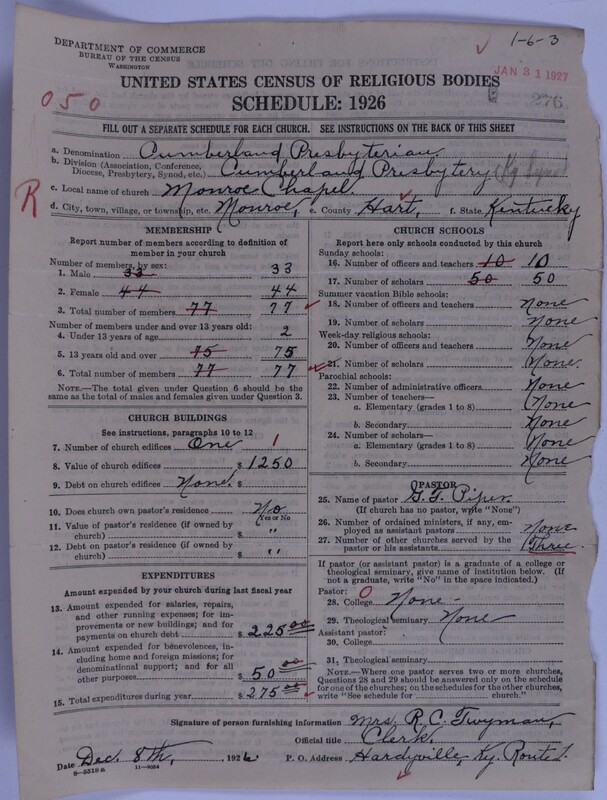 DEPARTMENT OF COMMERCE
BUREAU OF THE CENSUS
WASHINGTON
1-6-3
JAN 31 1927
276
UNITED STATES CENSUS OF RELIGIOUS BODIES
SCHEDULE: 1926
050
FILL OUT A SEPARATE SCHEDULE FOR EACH CHURCH. SEE INSTRUCTIONS ON THE BACK OF THIS SHEET
a. Denomination Cumberland Presbyterian
b. Division (Association, Conference, Diocese, Presbytery, Synod, etc.) Cumberland Presbytery (Ky Synod
R
c. Local name of church Monroe Chapel
d. City, town, village, or township, etc. Monroe, e. County Hart, f. State Kentucky
MEMBERSHIP
Report number of members according to definition of member in your church
Number of members, by sex:
1. Male 33 33
2. Female 44 44
3. Total number of members 77 77
Number of members under and over 13 years old:
4. Under 13 years of age 2
5. 13 years old and over 75 75
6. Total number of members 77 77
NOTE.—The total given under Question 6 should be the same as the total of males and females given under Question 3.
CHURCH BUILDINGS
See instructions, paragraphs 10 to 12
7. Number of church edifices One 1
8. Value of church edifices $ 1250
9. Debt on church edifices None. $
10. Does church own pastor's residence No
(Yes or No)
11. Value of pastor's residence (if owned by church) $ "
12. Debt on pastor's residence (if owned by church) $ "
EXPENDITURES
Amount expended by your church during last fiscal year
13. Amount expended for salaries, repairs, and other running expenses; for improvements or new buildings; and for payments on church debt $ 225 00
14. Amount expended for benevolences, including home and foreign missions; for denominational support; and for all other purposes $ 50 00
15. Total expenditures during year $ 275 00
CHURCH SCHOOLS
Report here only schools conducted by this church
Sunday schools:
16. Number of officers and teachers 10 10
17. Number of scholars 50 50
Summer vacation Bible schools:
18. Number of officers and teachers None
19. Number of scholars None
Week-day religious schools:
20. Number of officers and teachers None
21. Number of scholars None.
Parochial schools:
22. Number of administrative officers None
23. Number of teachers—
a. Elementary (grades 1 to 8) None
b. Secondary None
24. Number of scholars—
a. Elementary (grades 1 to 8) None
b. Secondary None
PASTOR
25. Name of pastor G. T. Piper.
(If church has no pastor, write "None")
26. Number of ordained ministers, if any, employed as assistant pastors None
27. Number of other churches served by the pastor or his assistants Three
If pastor (or assistant pastor) is a graduate of a college or theological seminary, give name of institution below. (If not a graduate, write "No" in the space indicated.)
Pastor: 0
28. College None -
29. Theological seminary None
Assistant pastor:
30. College
31. Theological seminary
NOTE.—Where one pastor serves two or more churches, Questions 28 and 29 should be answered only on the schedule for one of the churches; on the schedules for the other churches, write "See schedule for church."
Signature of person furnishing information Mrs. R. C. Twyman,
Official title Clerk.
Date Dec. 8th, 1926 P. O. Address Hardyville, Ky. Route 1.
11—9034